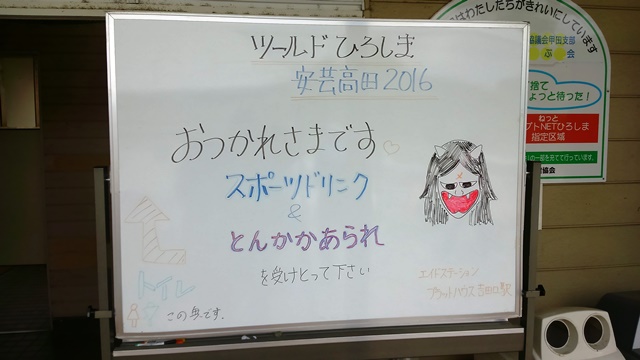 ツールドひろしま
安芸高田2016
おつかれさまです♡
スポーツドリンク
&
とんかかあられ
を受けとって下さい
エイドステーション
フラットハウス吉田口駅
トイレ
この奥です。
はわたしたちがきれいにしています
協議会甲田支部
ぶ 会
捨て
ょっと待った!
ねっと
プトNETひろしま
指定区域
の一部を充てて行っています。
協会